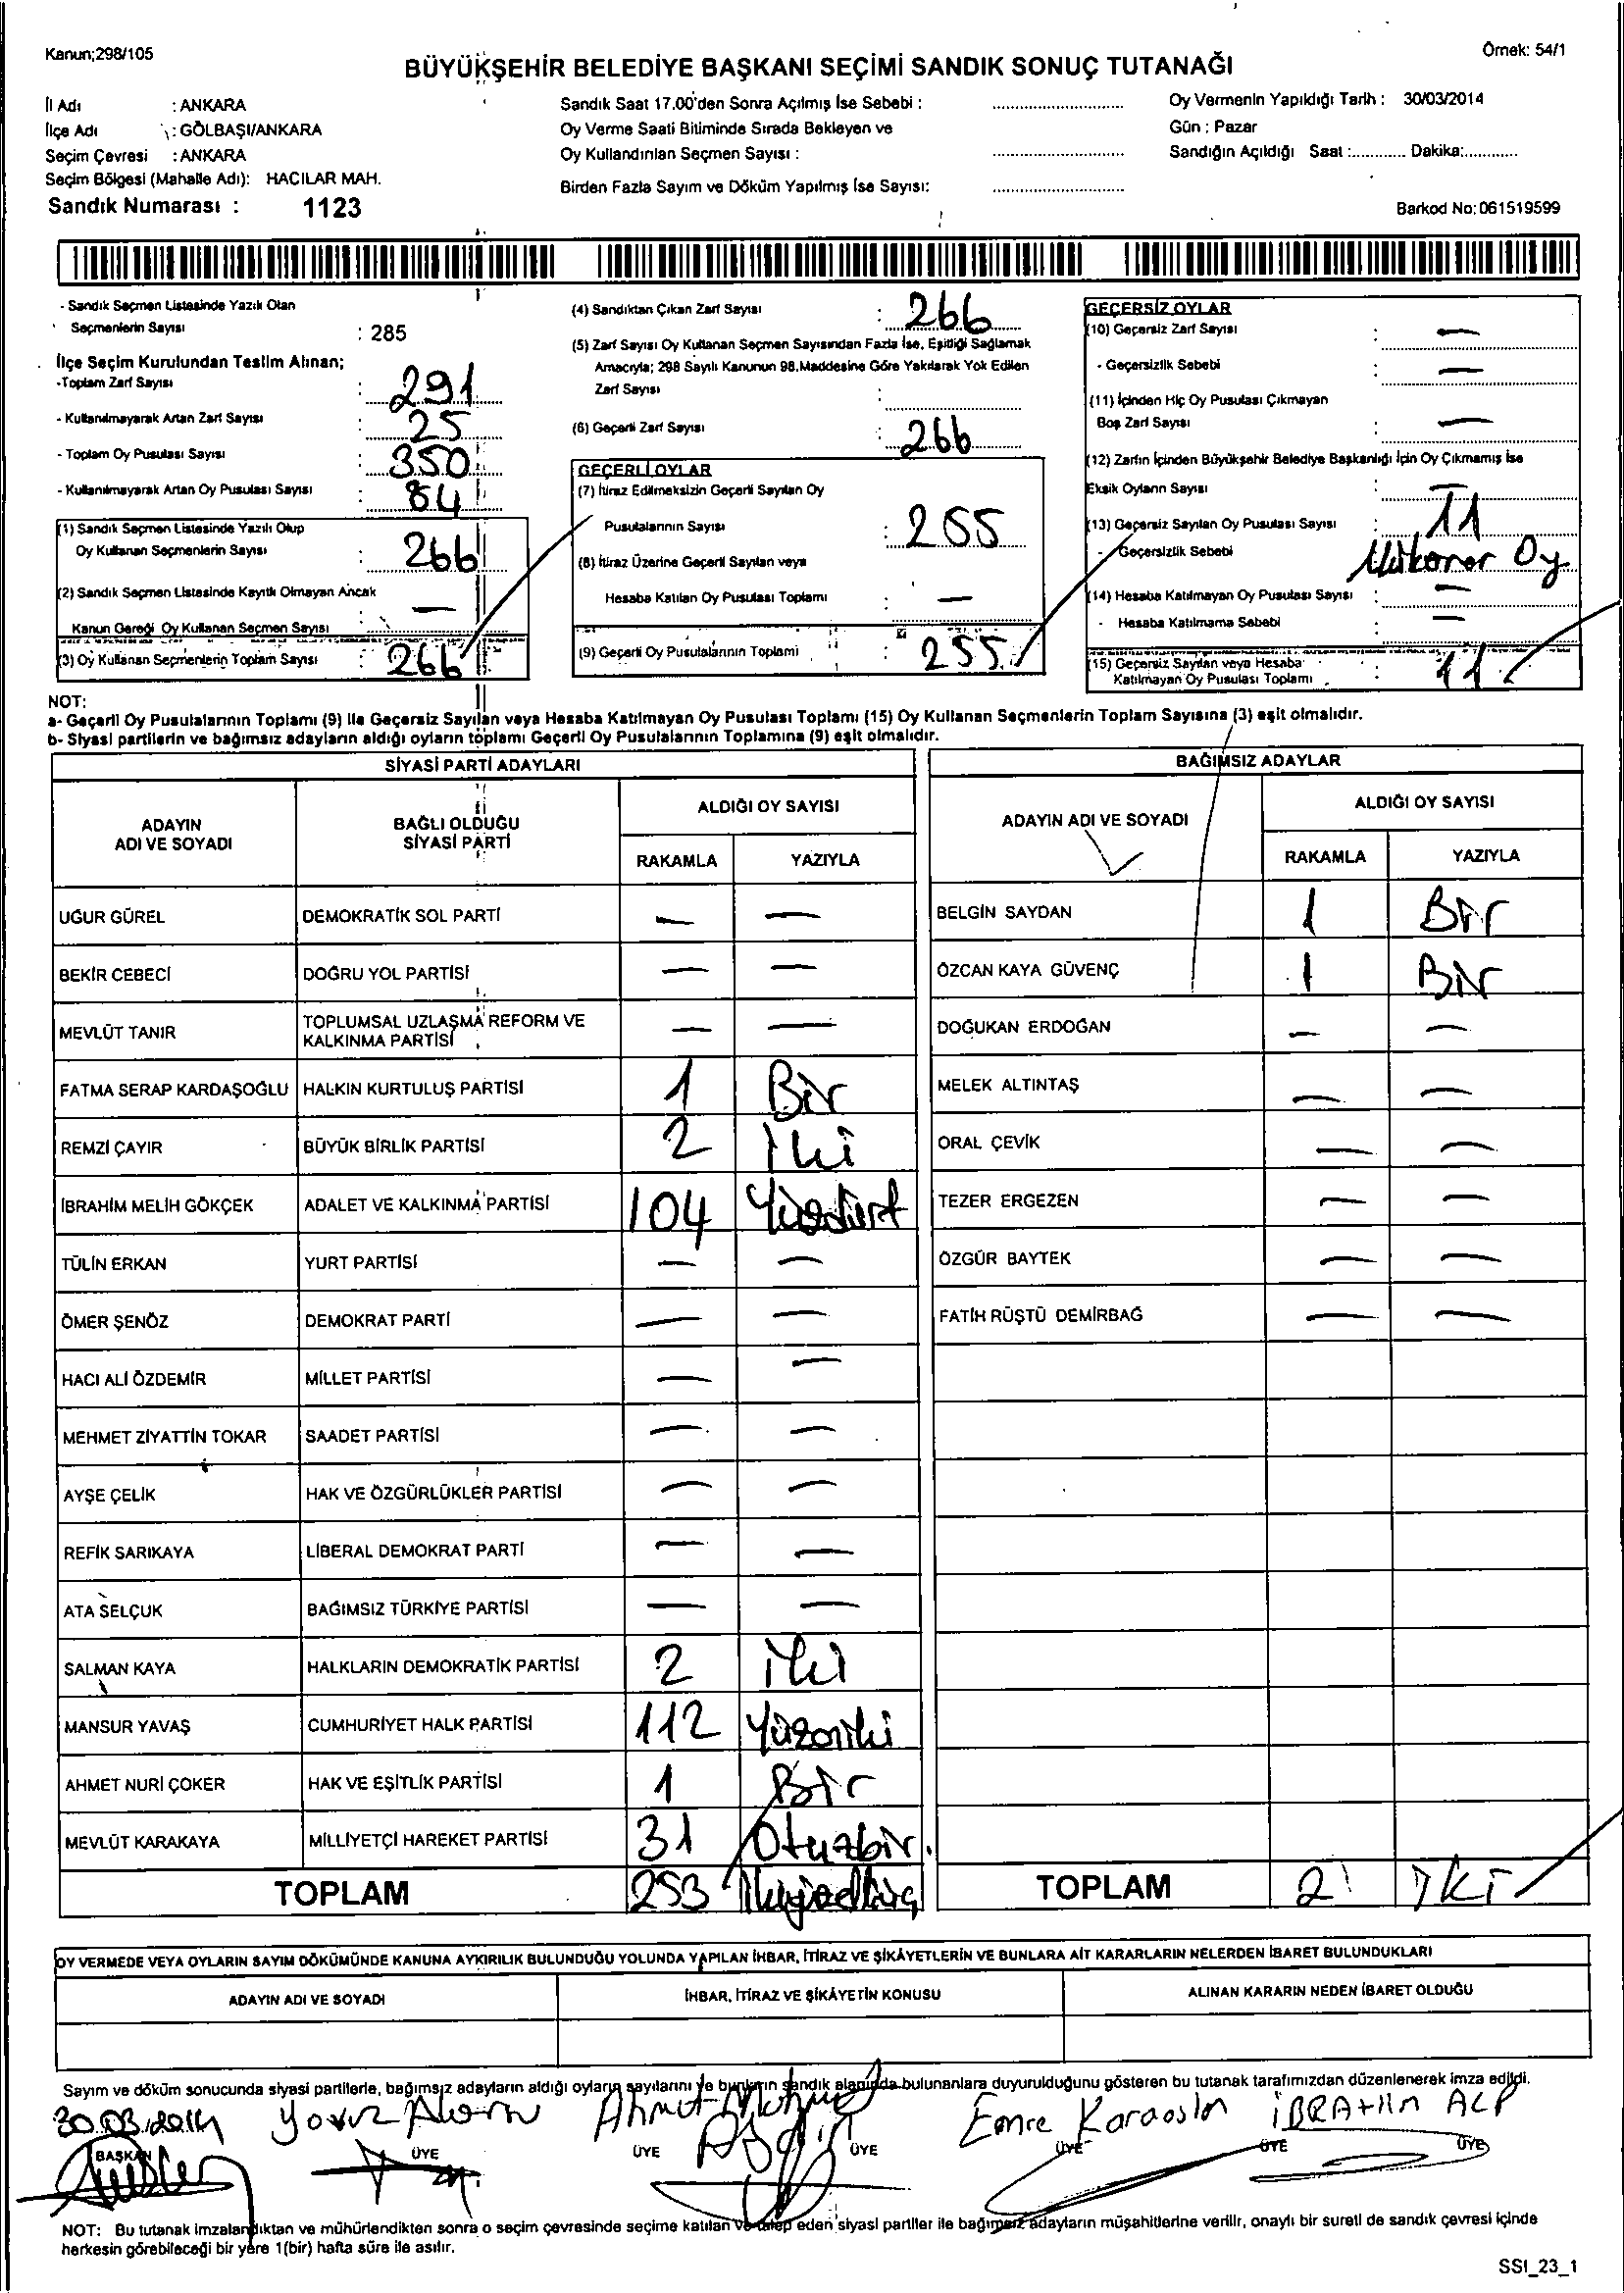 Kanun;298/105
Örnek: 54/1
BÜYÜKŞEHİR BELEDİYE BAŞKANI SEÇİMİ SANDIK SONUÇ TUTANAĞI
İl Adı : ANKARA
İlçe Adı : GÖLBAŞI/ANKARA
Seçim Çevresi : ANKARA
Seçim Bölgesi (Mahalle Adı): HACILAR MAH.
Sandık Numarası : 1123
Sandık Saat 17.00'den Sonra Açılmış İse Sebebi :
Oy Verme Saati Bitiminde Sırada Bekleyen ve
Oy Kullandırılan Seçmen Sayısı :
Birden Fazla Sayım ve Döküm Yapılmış İse Sayısı:
Oy Vermenin Yapıldığı Tarih : 30/03/2014
Gün : Pazar
Sandığın Açıldığı Saat :............ Dakika:............
Barkod No: 061519599
- Sandık Seçmen Listesinde Yazılı Olan
Seçmenlerin Sayısı : 285
İlçe Seçim Kurulundan Teslim Alınan;
-Toplam Zarf Sayısı : 291
- Kullanılmayarak Artan Zarf Sayısı : 25
- Toplam Oy Pusulası Sayısı : 350
- Kullanılmayarak Artan Oy Pusulası Sayısı : 84
(1) Sandık Seçmen Listesinde Yazılı Olup
Oy Kullanan Seçmenlerin Sayısı : 266
(2) Sandık Seçmen Listesinde Kayıtlı Olmayan Ancak
Kanun Gereği Oy Kullanan Seçmen Sayısı : —
(3) Oy Kullanan Seçmenlerin Toplam Sayısı : 266
(4) Sandıktan Çıkan Zarf Sayısı : 266
(5) Zarf Sayısı Oy Kullanan Seçmen Sayısından Fazla İse, Eşitliği Sağlamak
Amacıyla; 298 Sayılı Kanunun 98.Maddesine Göre Yakılarak Yok Edilen
Zarf Sayısı :
(6) Geçerli Zarf Sayısı : 266
GEÇERLİ OYLAR
(7) İtiraz Edilmeksizin Geçerli Sayılan Oy
Pusulalarının Sayısı : 255
(8) İtiraz Üzerine Geçerli Sayılan veya
Hesaba Katılan Oy Pusulası Toplamı : —
(9) Geçerli Oy Pusulalarının Toplamı : 255
GEÇERSİZ OYLAR
(10) Geçersiz Zarf Sayısı : —
- Geçersizlik Sebebi —
(11) İçinden Hiç Oy Pusulası Çıkmayan
Boş Zarf Sayısı : —
(12) Zarfın İçinden Büyükşehir Belediye Başkanlığı İçin Oy Çıkmamış İse
Eksik Oyların Sayısı : —
(13) Geçersiz Sayılan Oy Pusulası Sayısı : 11
- Geçersizlik Sebebi Mükerrer Oy
(14) Hesaba Katılmayan Oy Pusulası Sayısı : —
- Hesaba Katılmama Sebebi —
(15) Geçersiz Sayılan veya Hesaba
Katılmayan Oy Pusulası Toplamı : 11
NOT:
a- Geçerli Oy Pusulalarının Toplamı (9) ile Geçersiz Sayılan veya Hesaba Katılmayan Oy Pusulası Toplamı (15) Oy Kullanan Seçmenlerin Toplam Sayısına (3) eşit olmalıdır.
b- Siyasi partilerin ve bağımsız adayların aldığı oyların toplamı Geçerli Oy Pusulalarının Toplamına (9) eşit olmalıdır.
SİYASİ PARTİ ADAYLARI
ADAYIN ADI VE SOYADI BAĞLI OLDUĞU SİYASİ PARTİ ALDIĞI OY SAYISI
RAKAMLA YAZIYLA
UĞUR GÜREL DEMOKRATİK SOL PARTİ — —
BEKİR CEBECİ DOĞRU YOL PARTİSİ — —
MEVLÜT TANIR TOPLUMSAL UZLAŞMA REFORM VE KALKINMA PARTİSİ — —
FATMA SERAP KARDAŞOĞLU HALKIN KURTULUŞ PARTİSİ 1 Bir
REMZİ ÇAYIR BÜYÜK BİRLİK PARTİSİ 2 İki
İBRAHİM MELİH GÖKÇEK ADALET VE KALKINMA PARTİSİ 104 Yüzdört
TÜLİN ERKAN YURT PARTİSİ — —
ÖMER ŞENÖZ DEMOKRAT PARTİ — —
HACI ALİ ÖZDEMİR MİLLET PARTİSİ — —
MEHMET ZİYATTİN TOKAR SAADET PARTİSİ — —
AYŞE ÇELİK HAK VE ÖZGÜRLÜKLER PARTİSİ — —
REFİK SARIKAYA LİBERAL DEMOKRAT PARTİ — —
ATA SELÇUK BAĞIMSIZ TÜRKİYE PARTİSİ — —
SALMAN KAYA HALKLARIN DEMOKRATİK PARTİSİ 2 iki
MANSUR YAVAŞ CUMHURİYET HALK PARTİSİ 112 Yüzoniki
AHMET NURİ ÇOKER HAK VE EŞİTLİK PARTİSİ 1 Bir
MEVLÜT KARAKAYA MİLLİYETÇİ HAREKET PARTİSİ 31 Otuzbir.
TOPLAM 253 İkiyüzelliüç
BAĞIMSIZ ADAYLAR
ADAYIN ADI VE SOYADI ALDIĞI OY SAYISI
RAKAMLA YAZIYLA
BELGİN SAYDAN 1 Bir
ÖZCAN KAYA GÜVENÇ 1 Bir
DOĞUKAN ERDOĞAN — —
MELEK ALTINTAŞ — —
ORAL ÇEVİK — —
TEZER ERGEZEN — —
ÖZGÜR BAYTEK — —
FATİH RÜŞTÜ DEMİRBAĞ — —
TOPLAM 2 İKİ
OY VERMEDE VEYA OYLARIN SAYIM DÖKÜMÜNDE KANUNA AYKIRILIK BULUNDUĞU YOLUNDA YAPILAN İHBAR, İTİRAZ VE ŞİKÂYETLERİN VE BUNLARA AİT KARARLARIN NELERDEN İBARET BULUNDUKLARI
ADAYIN ADI VE SOYADI İHBAR, İTİRAZ VE ŞİKÂYETİN KONUSU ALINAN KARARIN NEDEN İBARET OLDUĞU
Sayım ve döküm sonucunda siyasi partilerle, bağımsız adayların aldığı oyların sayılarını ve bunların sandık alanında bulunanlara duyurulduğunu gösteren bu tutanak tarafımızdan düzenlenerek imza edildi.
30.03.2014 Yavuz Ahmet Emre Karaoslan İBRAHİM ALP
BAŞKAN ÜYE ÜYE ÜYE ÜYE ÜYE ÜYE
NOT: Bu tutanak imzalandıktan ve mühürlendikten sonra o seçim çevresinde seçime katılan ve talep eden siyasi partiler ile bağımsız adayların müşahitlerine verilir, onaylı bir sureti de sandık çevresi içinde
herkesin görebileceği bir yere 1(bir) hafta süre ile asılır.
SSI_23_1